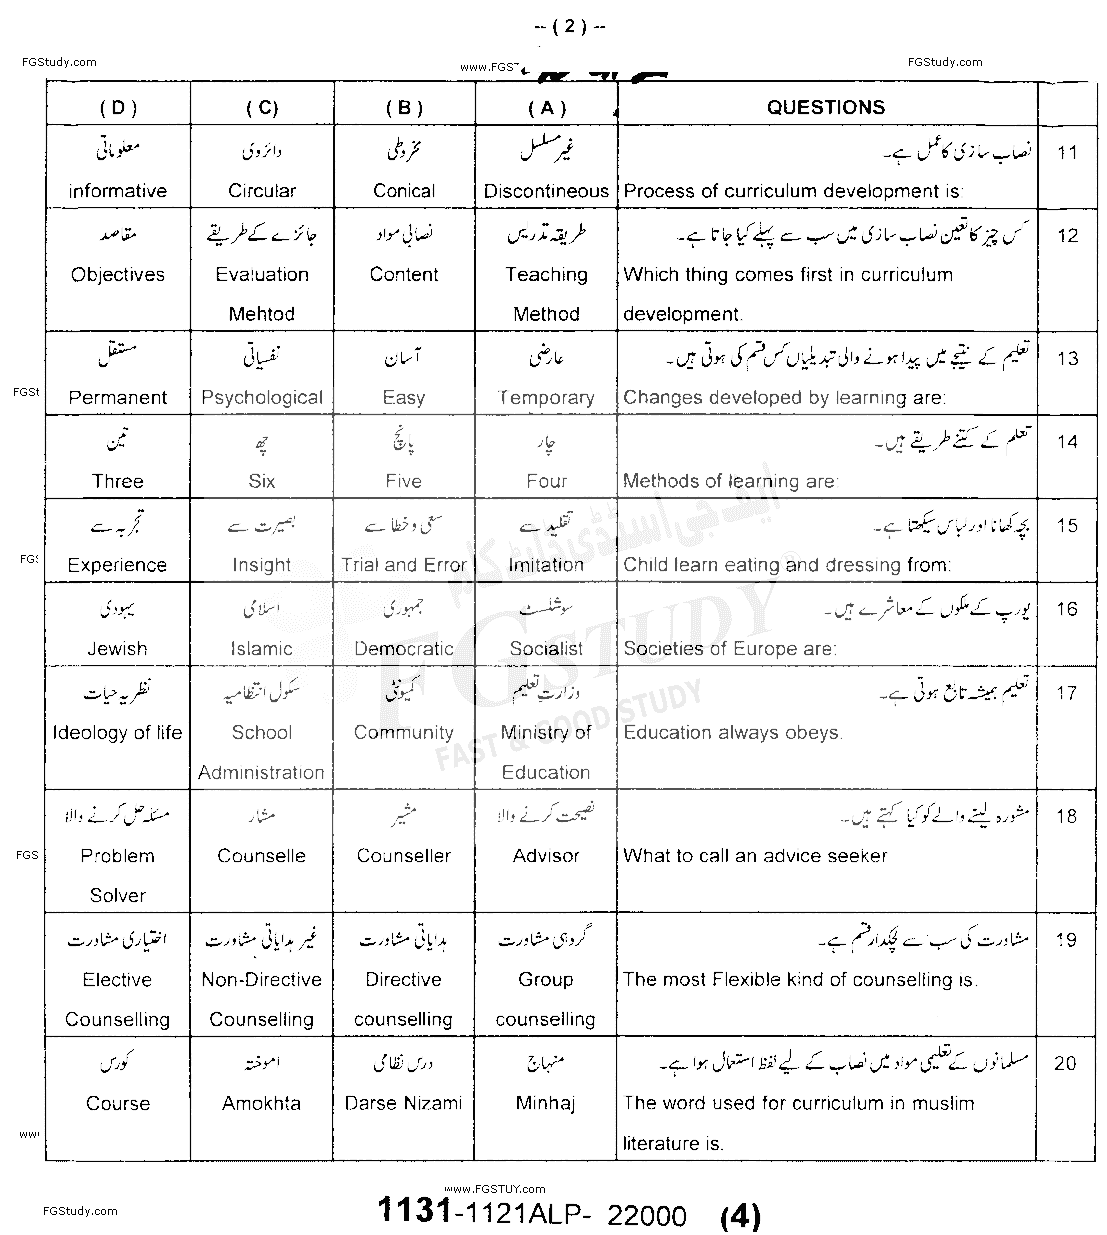 --(2)--
FGStudy.com
www.FGST
FGStudy.com
(D) (C) (B) (A) QUESTIONS
معلوماتی دائروی مخروطی غیر مسلسل نصاب سازی کا عمل ہے۔ 11
informative Circular Conical Discontineous Process of curriculum development is:
مقاصد جائزے کے طریقے نصابی مواد طریقہ تدریس کس چیز کا تعین نصاب سازی میں سب سے پہلے کیا جاتا ہے۔ 12
Objectives Evaluation Content Teaching Which thing comes first in curriculum
Mehtod Method development.
مستقل نفسیاتی آسان عارضی تعلیم کے نتیجے میں پیدا ہونے والی تبدیلیاں کس قسم کی ہوتی ہیں۔ 13
FGSt
Permanent Psychological Easy Temporary Changes developed by learning are:
تین چھ پانچ چار تعلم کے کتنے طریقے ہیں۔ 14
Three Six Five Four Methods of learning are:
ایف جی اسٹڈی ڈاٹ کام
تجربہ سے بصیرت سے سعی و خطا سے تقلید سے بچہ کھانا اور لباس سیکھتا ہے۔ 15
FGS
Experience Insight Trial and Error Imitation Child learn eating and dressing from:
یہودی اسلامی جمہوری سوشلسٹ یورپ کے ملکوں کے معاشرے ہیں۔ 16
Jewish Islamic Democratic Socialist Societies of Europe are:
FGSTUDY ®
FAST & GOOD STUDY
نظریہ حیات سکول انتظامیہ کمیونٹی وزارت تعلیم تعلیم ہمیشہ تابع ہوتی ہے۔ 17
Ideology of life School Community Ministry of Education always obeys.
Administration Education
مسئلہ حل کرنے والا مشار مشیر نصیحت کرنے والا مشورہ لینے والے کو کیا کہتے ہیں۔ 18
FGS
Problem Counselle Counseller Advisor What to call an advice seeker
Solver
اختیاری مشاورت غیر ہدایاتی مشاورت ہدایاتی مشاورت گروہی مشاورت مشاورت کی سب سے لچکدار قسم ہے۔ 19
Elective Non-Directive Directive Group The most Flexible kind of counselling is.
Counselling Counselling counselling counselling
کورس آموختہ درس نظامی منہاج مسلمانوں کے تعلیمی مواد میں نصاب کے لیے لفظ استعمال ہوا ہے۔ 20
Course Amokhta Darse Nizami Minhaj The word used for curriculum in muslim
ww
literature is.
www.FGSTUY.com
FGStudy.com
1131-1121ALP- 22000 (4)